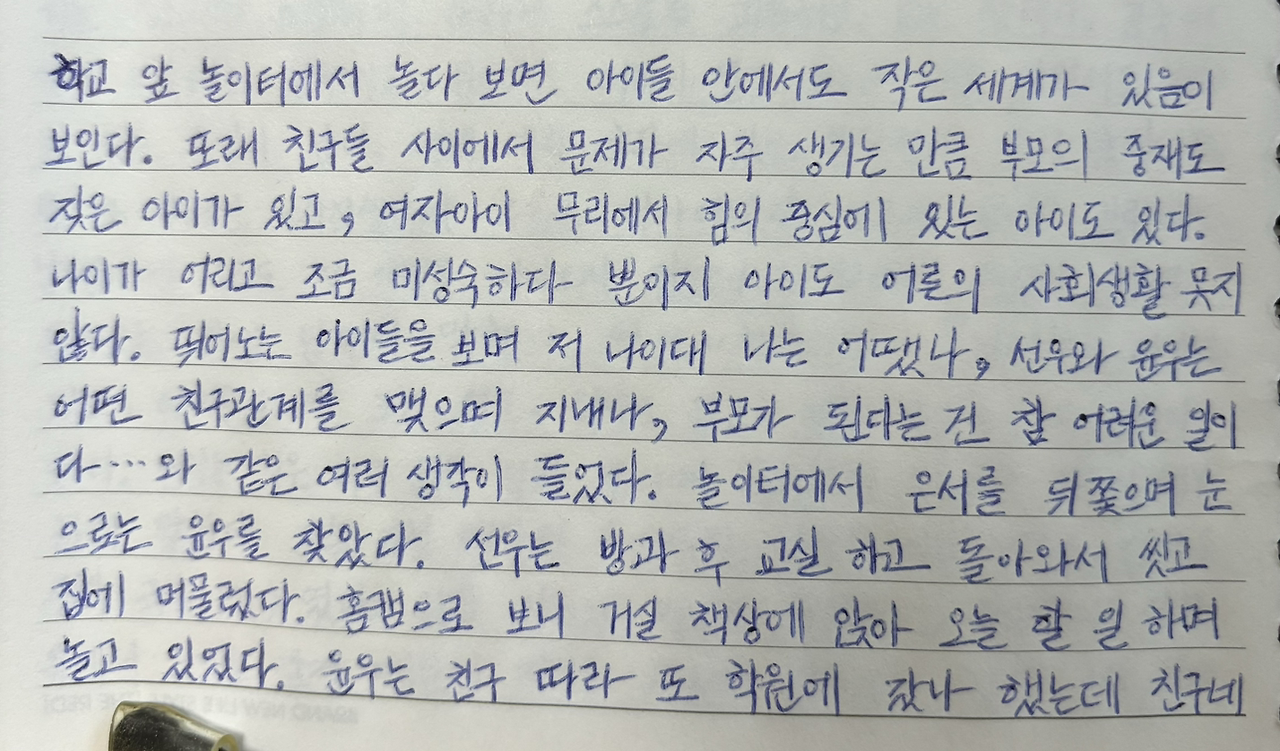 학교 앞 놀이터에서 놀다 보면 아이들 안에서도 작은 세계가 있음이
보인다. 또래 친구들 사이에서 문제가 자주 생기는 만큼 부모의 중재도
잦은 아이가 있고, 여자아이 무리에서 힘의 중심에 있는 아이도 있다.
나이가 어리고 조금 미성숙하다 뿐이지 아이도 어른의 사회생활 못지
않다. 뛰어노는 아이들을 보며 저 나이대 나는 어땠나, 선우와 윤우는
어떤 친구관계를 맺으며 지내나, 부모가 된다는 건 참 어려운 일이
다…와 같은 여러 생각이 들었다. 놀이터에서 은서를 뒤쫓으며 눈
으로는 윤우를 찾았다. 선우는 방과 후 교실 하고 돌아와서 씻고
집에 머물렀다. 홈캠으로 보니 거실 책상에 앉아 오늘 할 일 하며
놀고 있었다. 윤우는 친구 따라 또 학원에 갔나 했는데 친구네